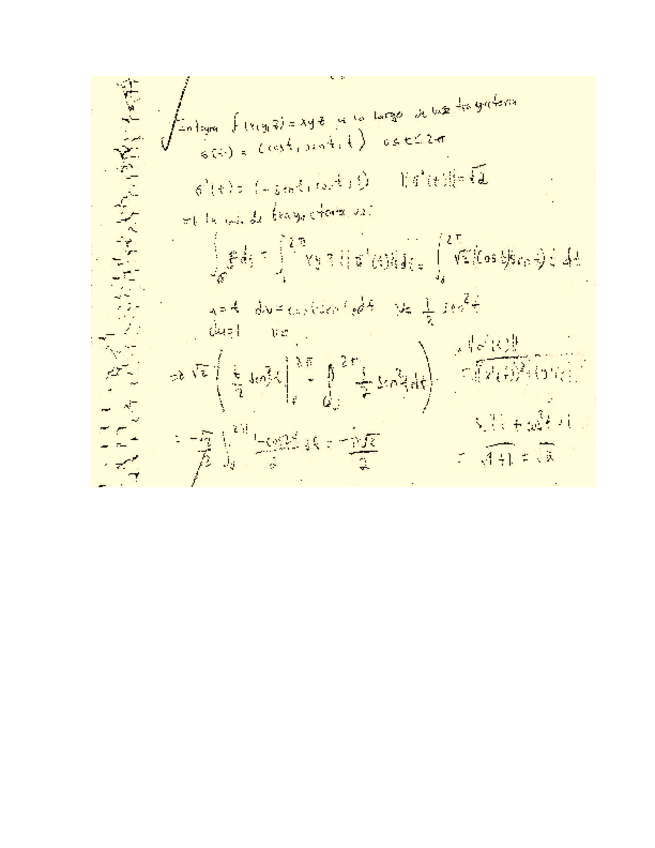 Integra f(x,y,z) = xyz a lo largo de la trayectoria
σ(t) = (cost, sent, t) 0≤t≤2π
σ'(t) = (-sent, cost, 1) ||σ'(t)|| = √2
de trayectoria es:
∫_σ F ds = ∫_0^{2π} xyz ||σ'(t)|| dt = ∫_0^{2π} √2 (cost)(sent) t dt
u=t dv = cost sent dt v = 1/2 sen²t
du=1
=> √2 ( t/2 sen²t |_0^{2π} - ∫_0^{2π} 1/2 sen²t dt )
||σ'(t)||
= -√2/2 ∫_0^{2π} 1-cos2t/2 dt = -π√2/2
= √1+1 = √2